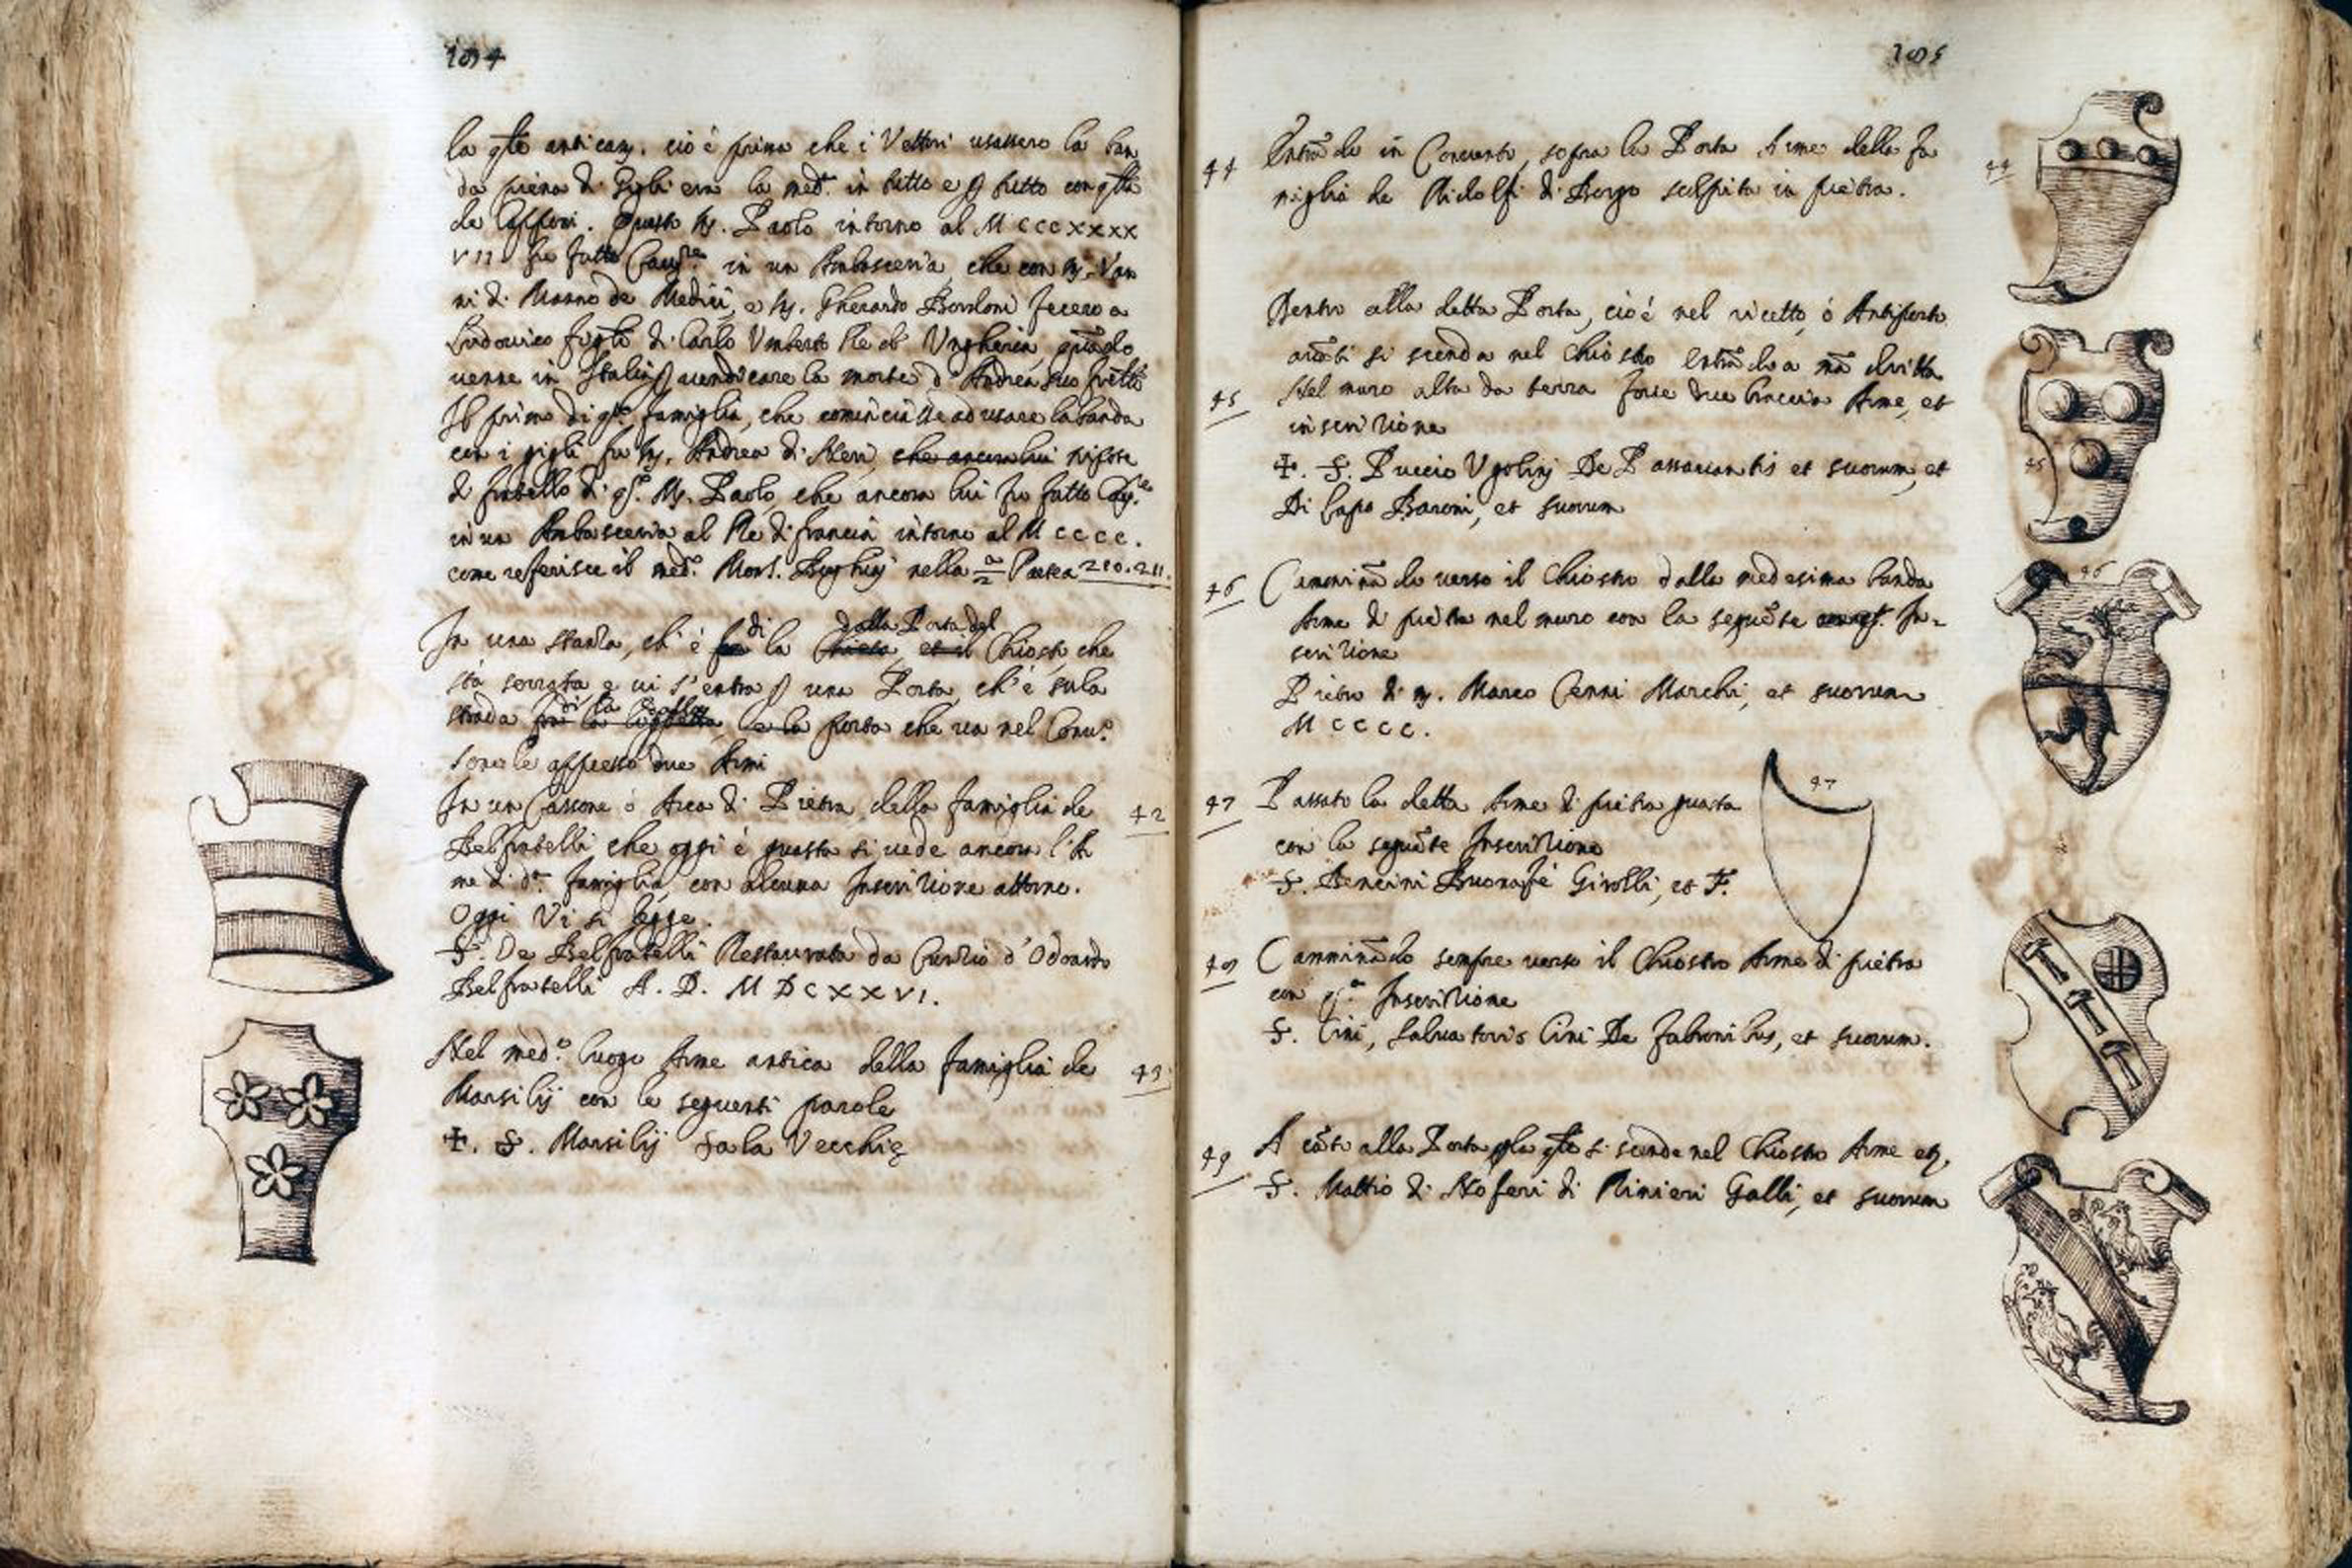 la qle anticam. cioè prima che i Vettori usassero la ban
da piena di Gigli era la med. in tutto e p tutto con qlla
de Capponi. Questo M. Paolo intorno al MCCCXXXX
VII fu fatto Caure in un Ambasceria che con M. Van
ni di Manno de Medici, e M. Gherardo Bordoni fecero a
Ludovico figlo di Carlo Umberto Re di Ungheria, quãdo
venne in Italia p vendicare la morte d'Andrea suo frello
Il primo di qta famiglia, che cominciasse ad usare la banda
con i gigli fu M. Andrea di Neri, che ancora lui nipote
di fratello di qs.o M. Paolo, che ancora lui fu fatto Cav.re
in un Ambasceria al Re di francia intorno al MCCCC.
come referisce il med.o Mons. Borghini nella a/2 Parte a 210. 211.
In una stanza, ch'è di la dalla Porta del Chiostro che
stà serrata e vi s'entra p una Porta, ch'è sula
strada di la porta che va nel Conv.o
sono le appresso due Armi
In un Cassone ò Arca di Pietra della famiglia de 42
Belfratelli che oggi è guasta si vede ancora l'Ar
me di d.a famiglia, con alcuna Inscrizione attorno.
Oggi Vi si legge.
S. De Belfratelli Restaurata da Curzio d'Odoardo
Belfratelli A. D. MDCXXVI.
Nel med.o luogo Arme antica della famiglia de 43
Marsilij con le seguenti parole
✠. S. Marsilij Vecchi
44 Entrãdo in Convento, sopra la Porta Arme della Fa 44
miglia de Ridolfi di Borgo scolpita in pietra.
Dentro alla detta Porta, cioè nel ricetto, ò Antiporto
avãti si scenda nel Chiostro entrãdo a mã dritta
45 Nel muro alta da terra forse due braccia Arme, et
inscrizione
✠. S. Puccio Ugolini De Passavantis et suorum, et 45
Di Lapo Baroni, et suorum
46 Camminãdo verso il Chiostro dalla medesima banda 46
Arme di pietra nel muro con la seguẽte In-
scrizione
Pietro di M. Marco Cenni Marchi, et suorum
MCCCC.
47 Passato la detta Arme di pietra guasta 47
con la seguẽte Inscrizione
S. Bencini Buonafè Girolli, et F.
48 Camminãdo sempre verso il Chiostro Arme di pietra
con q.a Inscrizione
S. Cini, Salvatoris Cini De Fabronibus, et suorum.
49 A cãto alla Porta p la qle si scende nel Chiostro Arme etc.
S. Mattio di Noferi di Rinieri Galli, et suorum